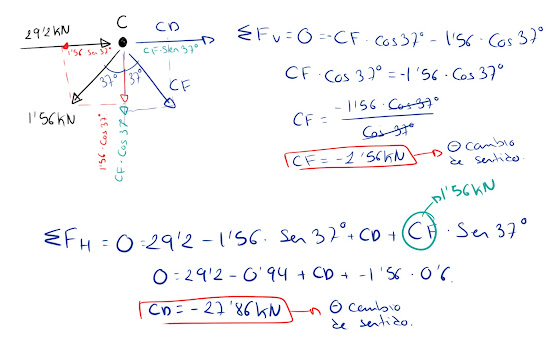 C
29'2 kN
CD
1'56·Sen 37°
CF·Sen 37°
37°
37°
CF
1'56 kN
1'56·Cos 37°
CF·Cos 37°
ΣFv = 0 = -CF·Cos 37° - 1'56·Cos 37°
CF·Cos 37° = -1'56·Cos 37°
CF = -1'56·Cos 37° / Cos 37°
CF = -1'56 kN
⊖ cambio de sentido.
1'56 kN
ΣFH = 0 = 29'2 - 1'56·Sen 37° + CD + CF·Sen 37°
0 = 29'2 - 0'94 + CD + -1'56·0'6.
CD = -27'86 kN
⊖ cambio de sentido.